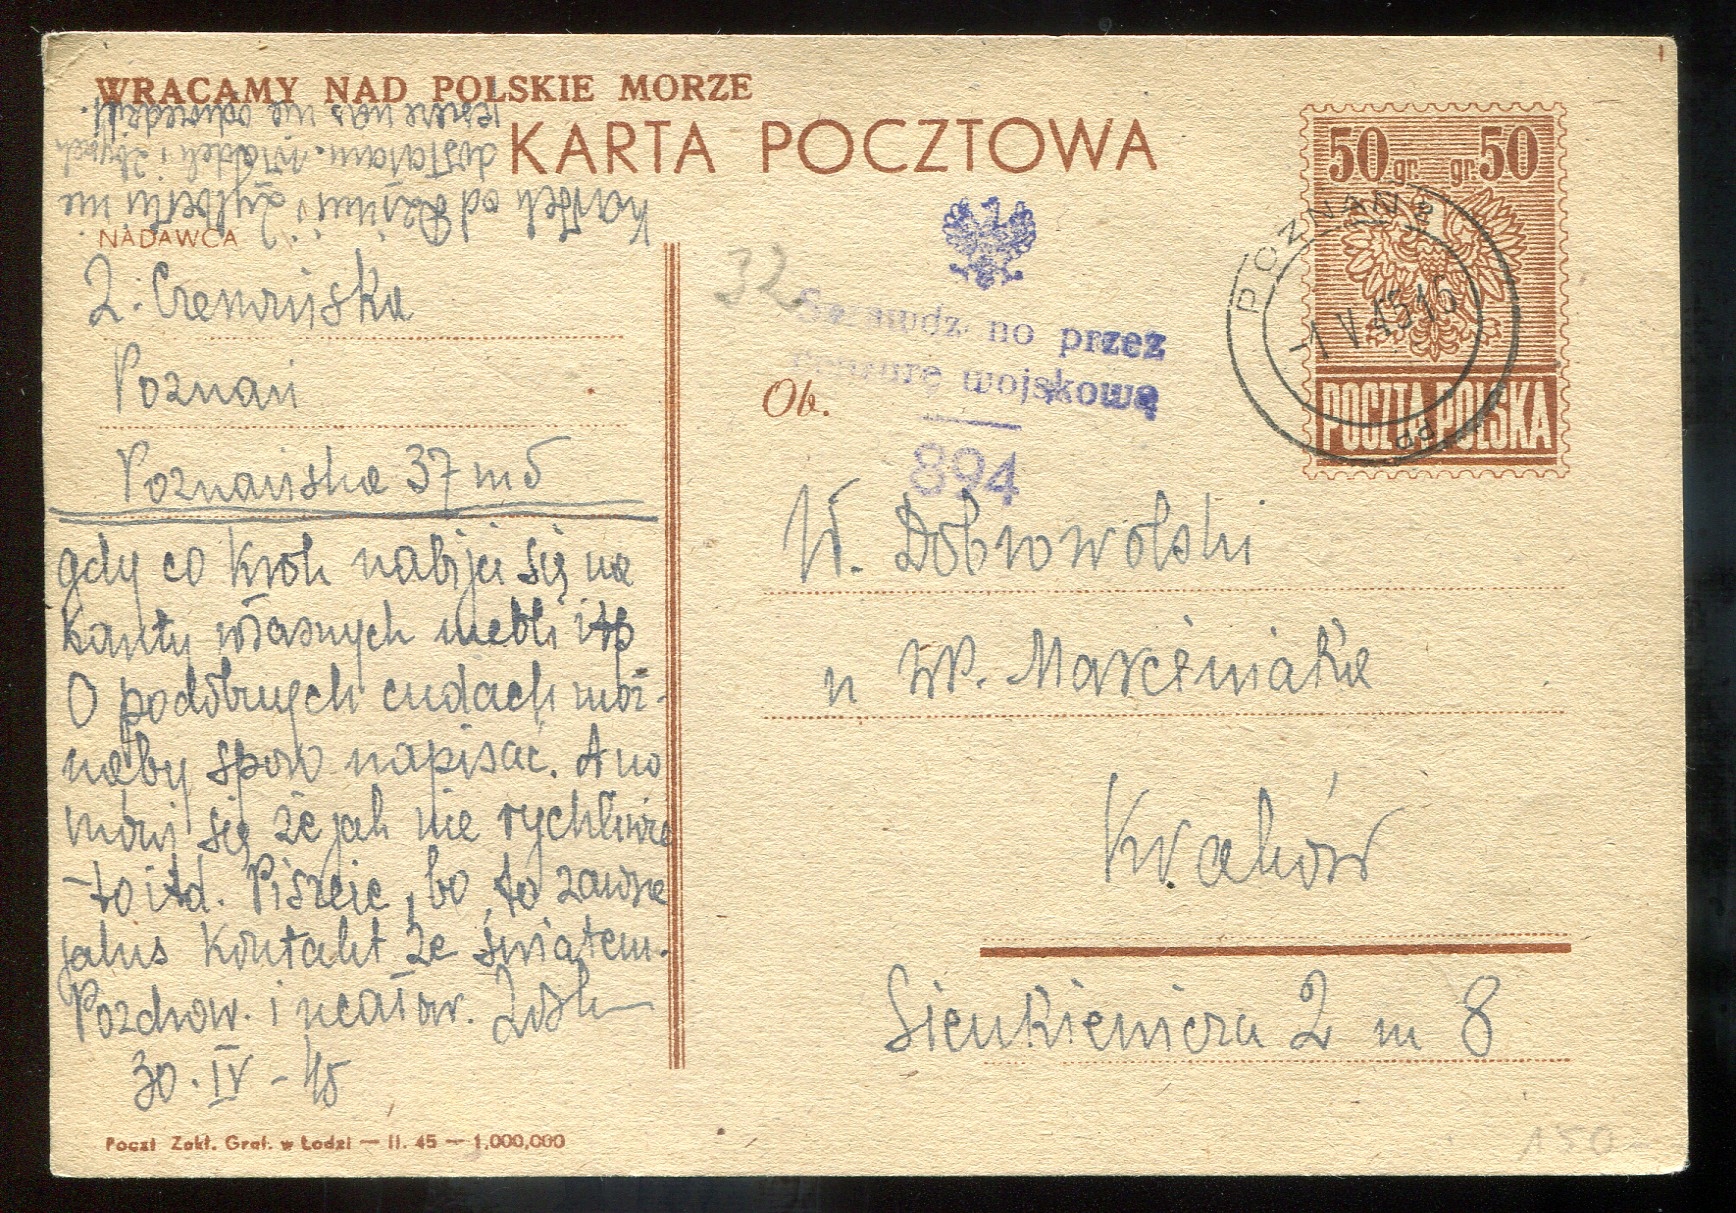 WRACAMY NAD POLSKIE MORZE
KARTA POCZTOWA
Kartek od i Zulbertu nie
dostałam. Władek i Zbyszek
jeszcze nas nie odwiedzili.
NADAWCA
Z. Czemińska
Poznań
Poznańska 37 m 5
gdy co krok nabija się na
kanty własnych mebli itp
O podobnych cudach moż-
naby sporo napisać. A no
mówi się że jak nie rychliwie
- to itd. Piszcie, bo to zawsze
jakiś kontakt ze światem.
Pozdrow. i ucałow. Zosia
30. IV - 45
Poczt Zakł. Graf. w Łodzi — II. 45 — 1,000,000
50 gr. gr. 50
POCZTA POLSKA
POZNAŃ 2
-1 V 45 16
PP
32
Sprawdzono przez
cenzurę wojskową
894
Ob.
W. Dobrowolski
u WP. Marciniaka
Kraków
Sienkiewicza 2 m 8
150-